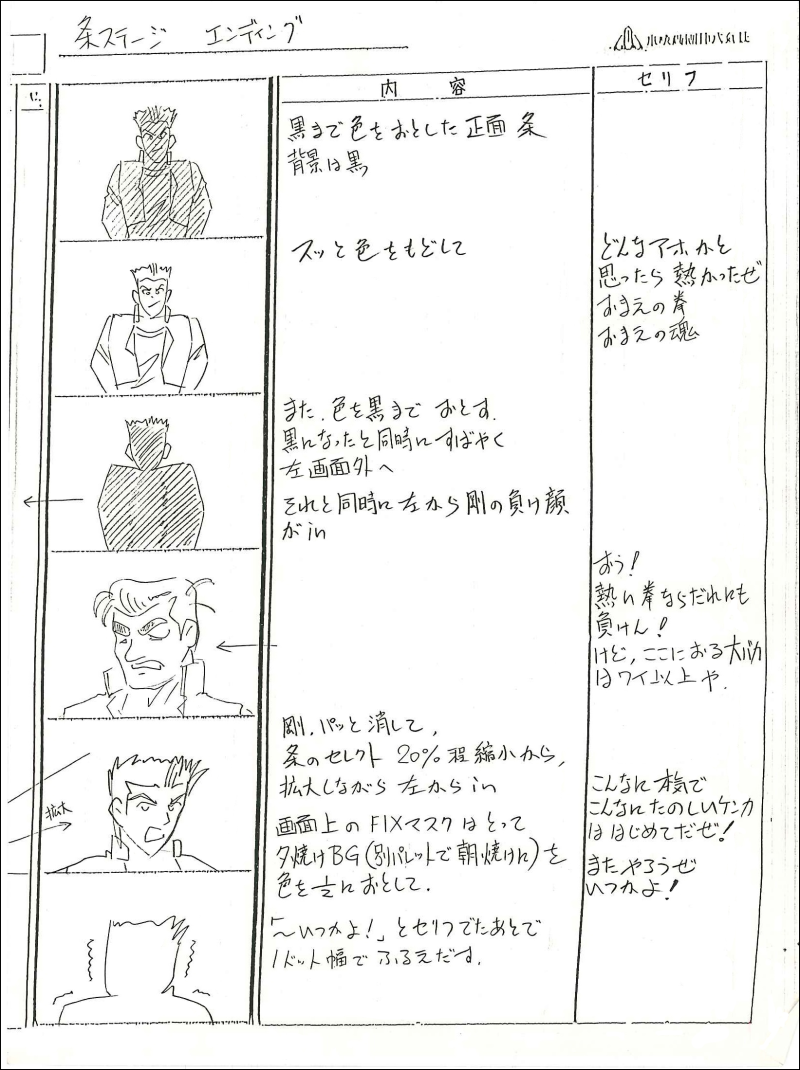 条ステージ エンディング
内容
セリフ
黒まで色をおとした正面 条
背景は黒
スッと色をもどして
どんなアホかと
思ったら 熱かったぜ
おまえの拳
おまえの魂
また、色を黒まで おとす.
黒になったと同時に すばやく
左画面外へ
それと同時に左から剛の負け顔
がin
おう!
熱い拳ならだれにも
負けん!
けど、ここにおる大バカ
はワイ以上や.
剛、パッと消して、
条のセレクト 20%程縮小から、
拡大しながら 左からin
拡大
こんなに本気で
こんなにたのしいケンカ
ははじめてだぜ!
画面上のFIXマスクはとって
夕焼けBG(別パレットで朝焼けに)を
色を½におとして.
またやろうぜ
いつかよ!
「~いつかよ!」とセリフでたあとで
1ドット幅で ふるえだす.